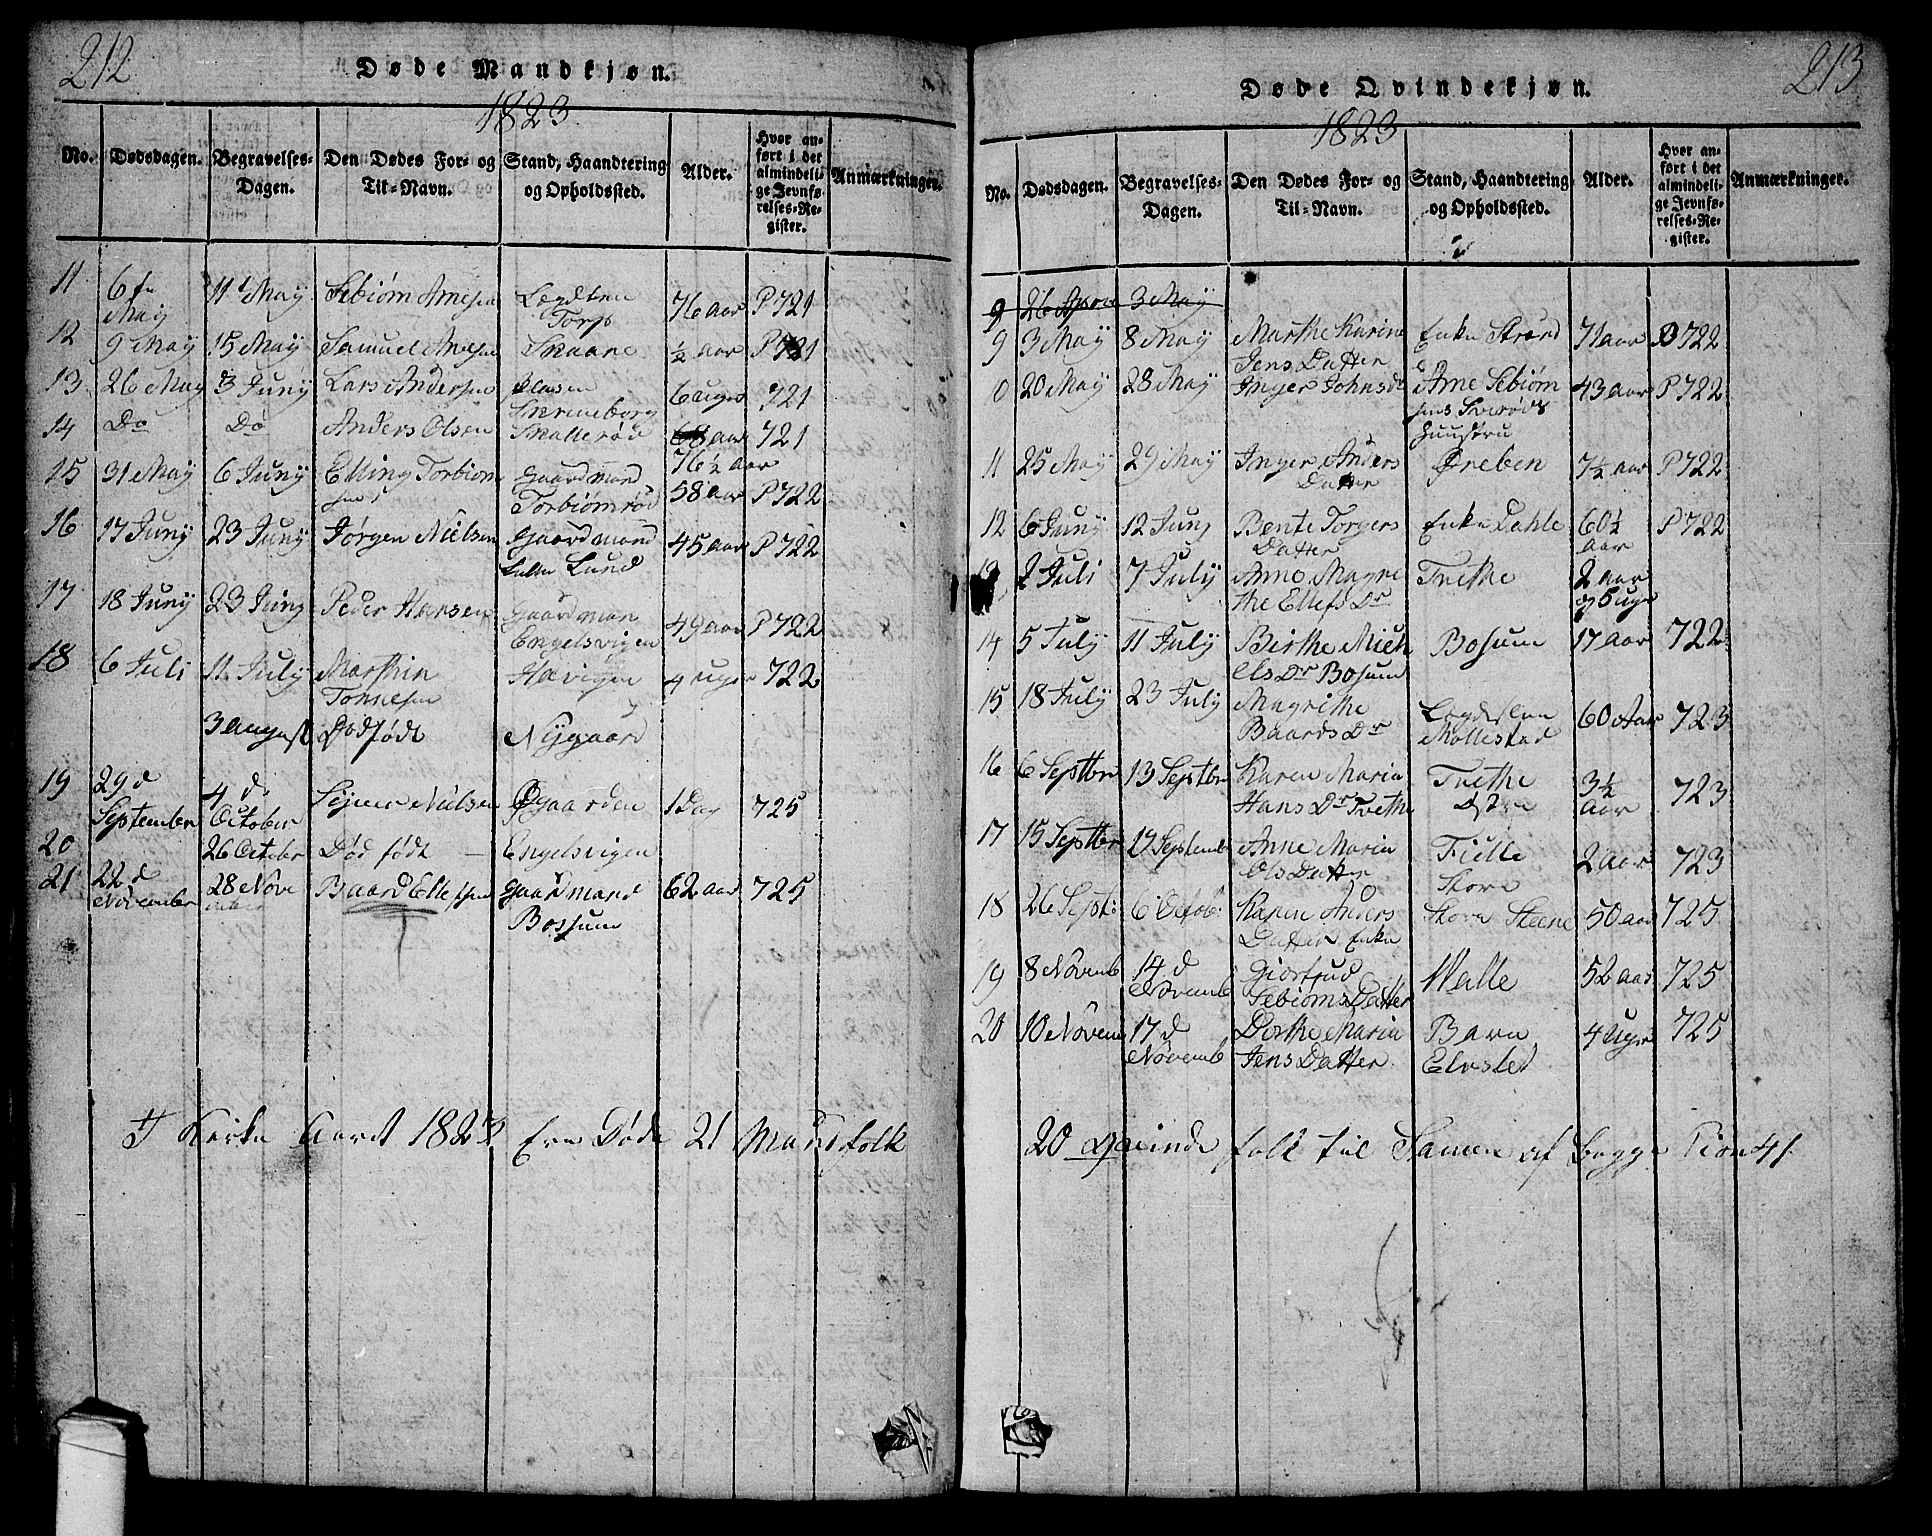 212
Døde Mandkjøn.
1823
No. Dødsdagen. Begravelses-Dagen. Den Dødes For- og Til-Navn. Stand, Haandtering og Opholdssted. Alder. Hvor anført i det almindelige Jevnførelses-Register. Anmærkninger.
11 6 May 11 May Sebiørn Arnesen Torp 76 aar P 721
12 9 May 15 May Samuel Skaare ½ aar P 721
13 26 May 3 Juny Lars Andersen 6 uger 721
14 Do Do Anders Olsen Skallerød 76½ aar 721
15 31 May 6 Juny Elling Torbiørnsen Gaardmand Torbiørnrød 58 aar P 722
16 17 Juny 23 Juny Jørgen Nielsen Gaardmand Lund 45 aar P 722
17 18 Juny 23 Juny Peder Hansen Gaardman Engelsvigen 49 aar P 722
18 6 Juli 11 July Marthin Tønnesen 4 uger 722
3 August Dødfødt Nygaard
19 29 d September 4 d October Nielsen 1 Dag 725
20 26 Octobr Død født Engelsvigen
21 22 d Novembr 28 November Baard Ellefsen gaardmand Bossum 62 aar 725
Kirke Aaret 1823 Ere Døde 21 Mandfolk
213
Døde Qvindekjøn.
1823
No. Dødsdagen. Begravelses-Dagen. Den Dødes For- og Til-Navn. Stand, Haandtering og Opholdssted. Alder. Hvor anført i det almindelige Jevnførelses-Register. Anmærkninger.
9 26 3 May
9 3 May 8 May Marthe Karine Jens Datter Enke 71 aar 722
20 May 28 May Inger Johns Arne Sebiørnsens 43 aar P 722
11 25 May 29 May Inger Anders Datter Ørebek 7½ aar P 722
12 6 Juny 12 Juny Bente Torgers Datter Enke Dahle 60½ aar P 722
2 Juli 7 July Anne Magrethe Ellefs Dr Trethe 2 aar og 5 uger
14 5 July 11 July Birthe Michels Dr Bosum Bosum 17 aar 722
15 18 July 23 July Magrethe Baards Dr Møllestad 60 Aar 723
16 6 Septbr 13 Septbr Karen Maria Hans Dr Trethe Trethe Østre 3½ aar 723
17 15 Septbr 19 Septemb Anne Maria Ols Datter Fielle Store 2 aar 723
18 26 Sept: 6 Octob: Karen Anders Datter Enke Store 50 aar 725
19 8 Novemb 14 d Novemb Giertrud Sebiørns Datter Walle 52 aar 725
20 10 Novem 17 d Novemb Dorthe Maria Jens Datter Barn Elvestet 4 Uger 725
20 Qvinde folk til Samen af Begge Kiøn 41